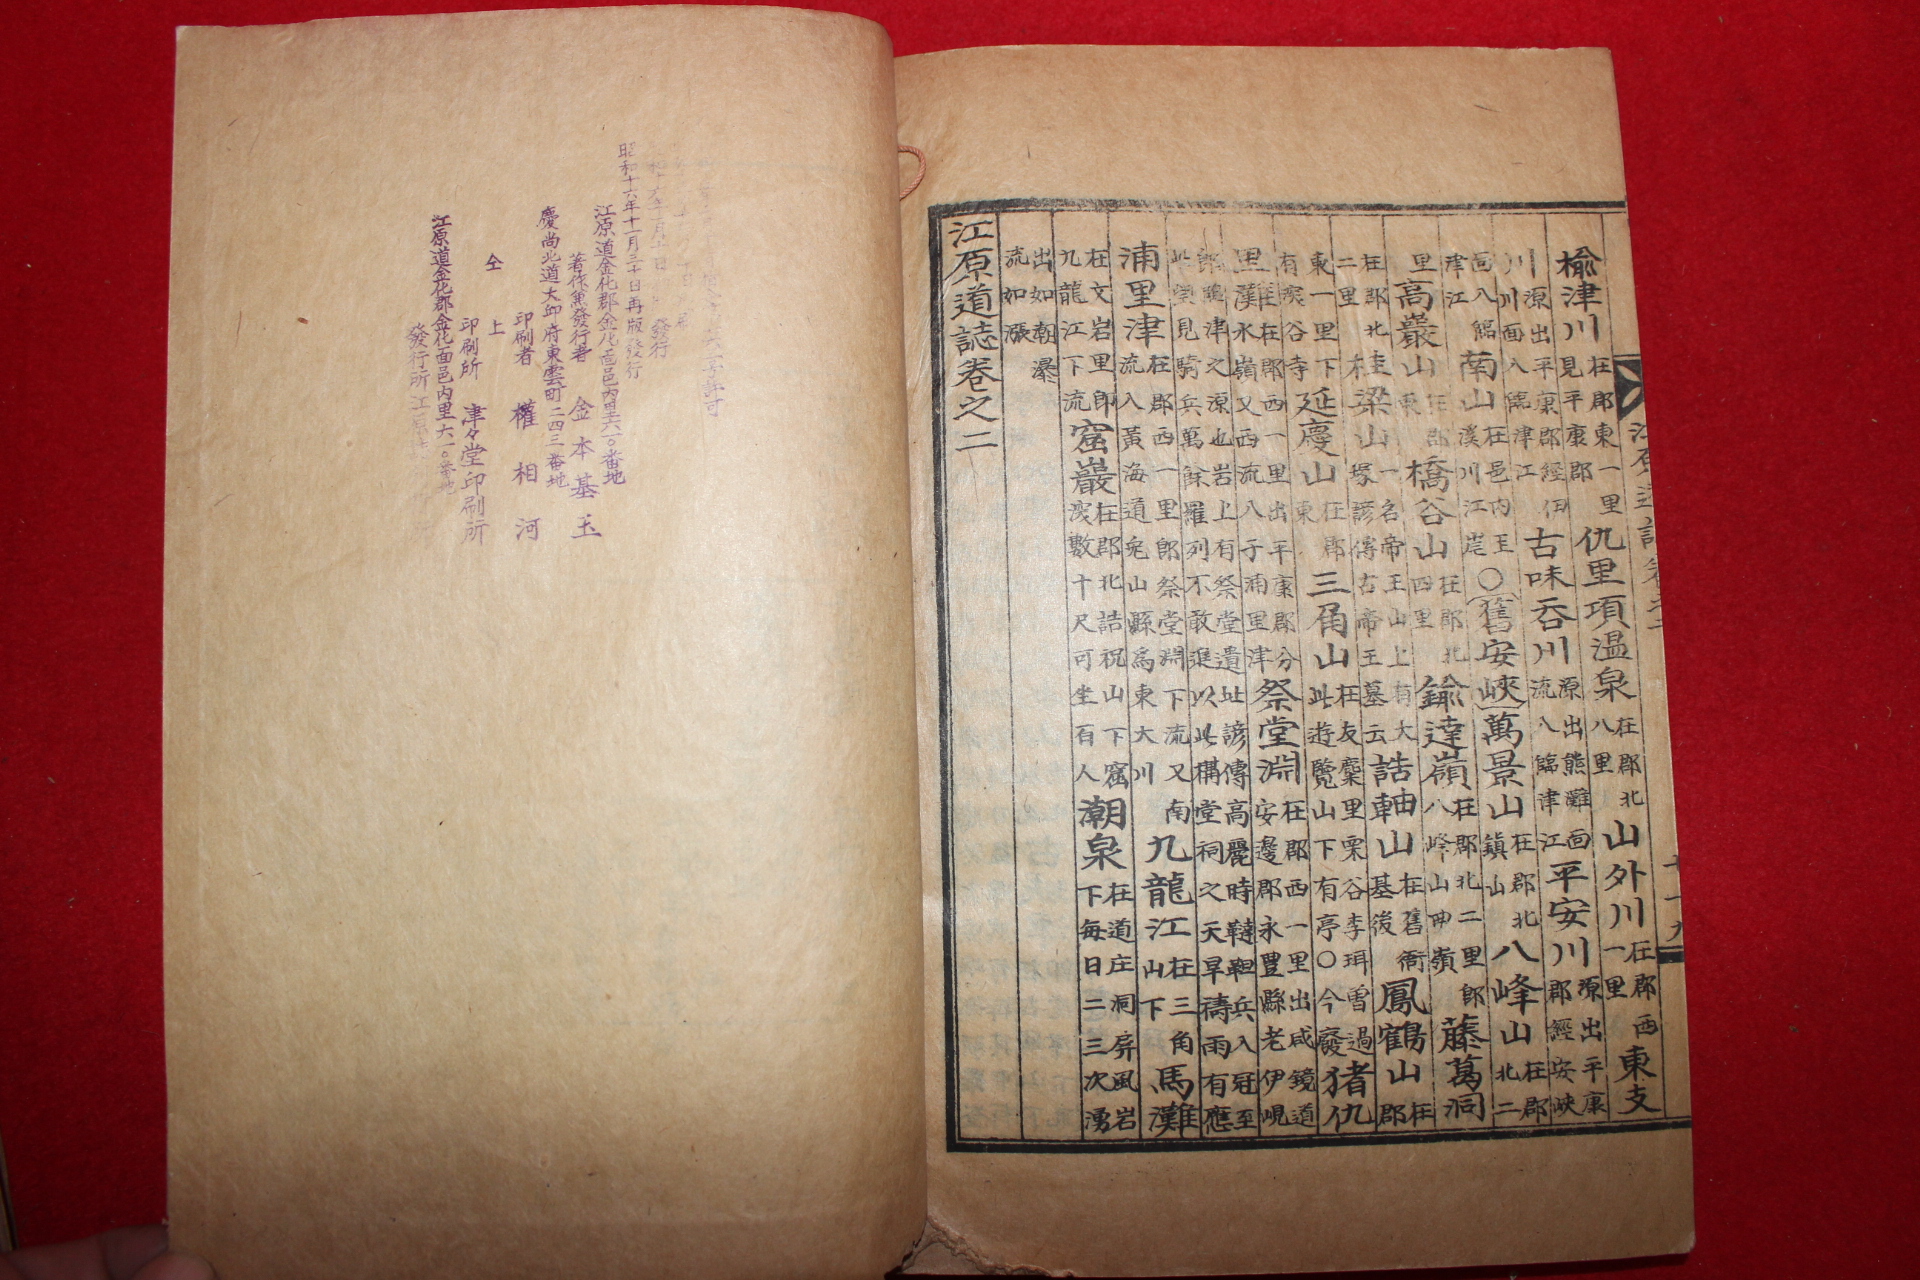 楡津川 在郡東一里 見平康郡 仇里項溫泉 在郡北 八里 山外川 在郡西 一里 東支
川 源出平康郡經伊 川面入臨津江 古味呑川 源出熊灘面 流入臨津江 平安川 源出平康 郡經安峽
面入臨 津江 南山 在邑內主 漢川江岸 ○(舊安峽)萬景山 在郡北 鎭山 八峰山 在郡 北二
里 高巖山 在郡 東 橋谷山 在郡北 四里 鍮達嶺 在郡北二里郎 八峰山西嶺 藤萬洞
在郡北 二里 桂梁山 一名帝王山上有大 塚諺傳古帝王墓云 誥軸山 在舊衙 基後 鳳鶴山 在 郡
有深谷寺 東一里下 延慶山 在郡 東 三角山 在友麋里栗谷李珥雪過 此遊覽山下有亭○今廢 猪仇
里灘 在郡西一里出平康郡分 水嶺又西流八于浦里津 祭堂淵 在郡西一里出咸鏡道 安邊郡永豊縣老伊峴
郎臨津之源也岩上有祭堂遺址諺傳高麗時韃靼兵入冠至 此望見騎兵萬餘羅列不敢進以此構堂祠之天旱禱雨有應
浦里津 在郡西一里郎祭堂淵下流又南 流入黃海道兎山縣爲東大川 九龍江 在三角 山下 馬灘
在文岩里郎 九龍江下流 窟巖 在郡北誥祝山下窟 深數十尺可坐百人 潮泉 在道庄洞屛風岩 下每日二三次湧
出如潮瀑 流如漲
江原道誌卷之二
昭和十六年十一月三十日再版發行
江原道金化郡金化面邑內里六一〇番地
著作兼發行者 金本基玉
慶尙北道大邱府東雲町二四三番地
印刷者 權相河
仝上
印刷所 津々堂印刷所
江原道金化郡金化面邑內里六一〇番地
發行所 江原